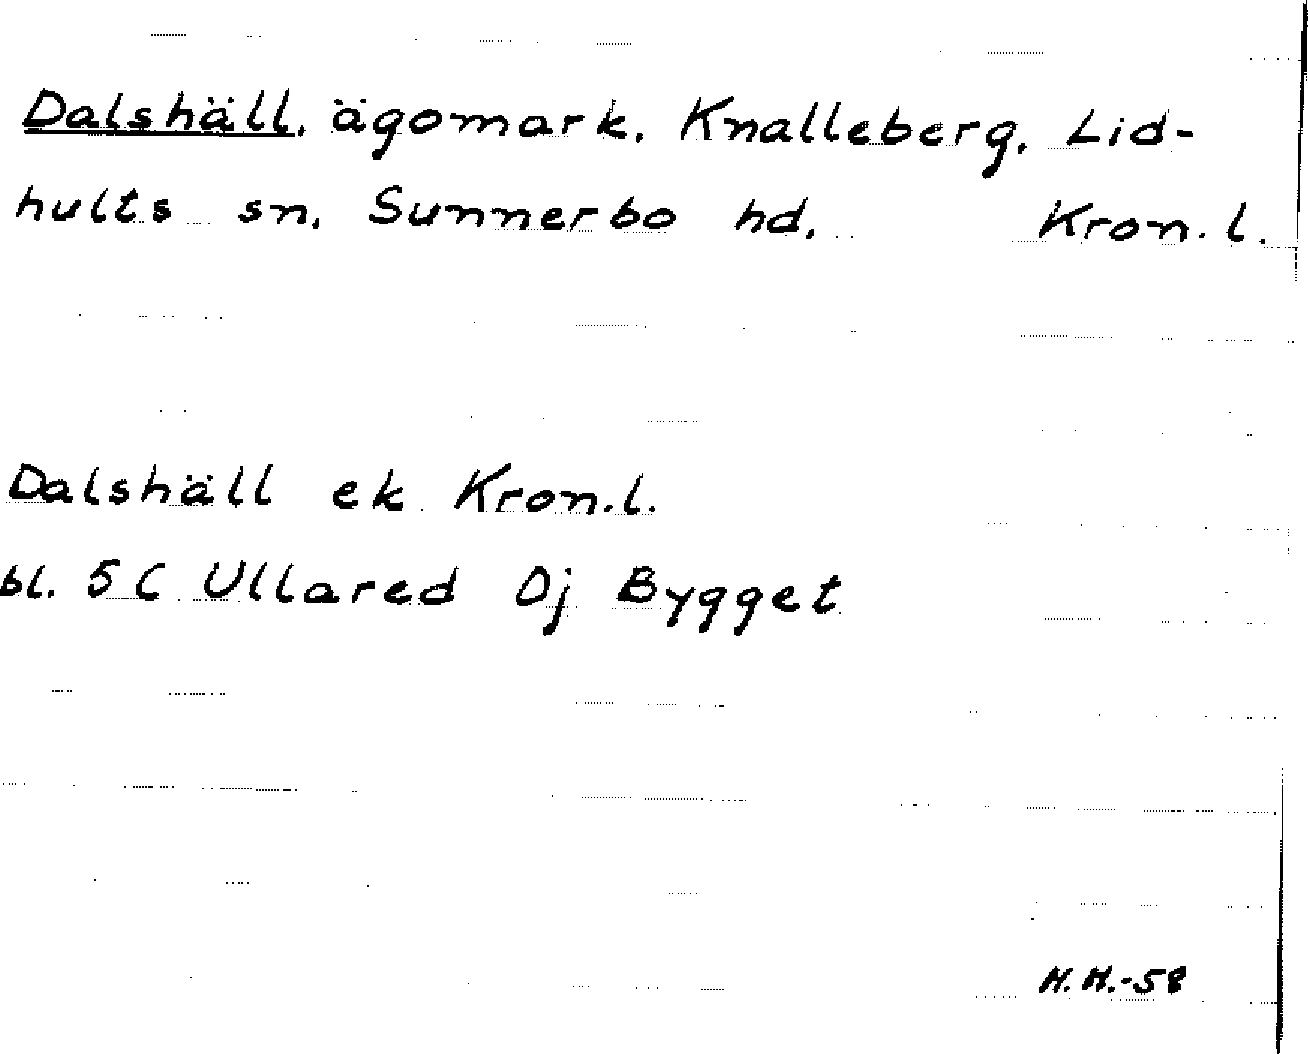 Dalshäll, ägomark, Knalleberg, Lid-
hults sn, Sunnerbo hd, Kron. l.
Dalshäll ek Kron.l.
bl. 5 C Ullared Dj Bygget
H.H.-58